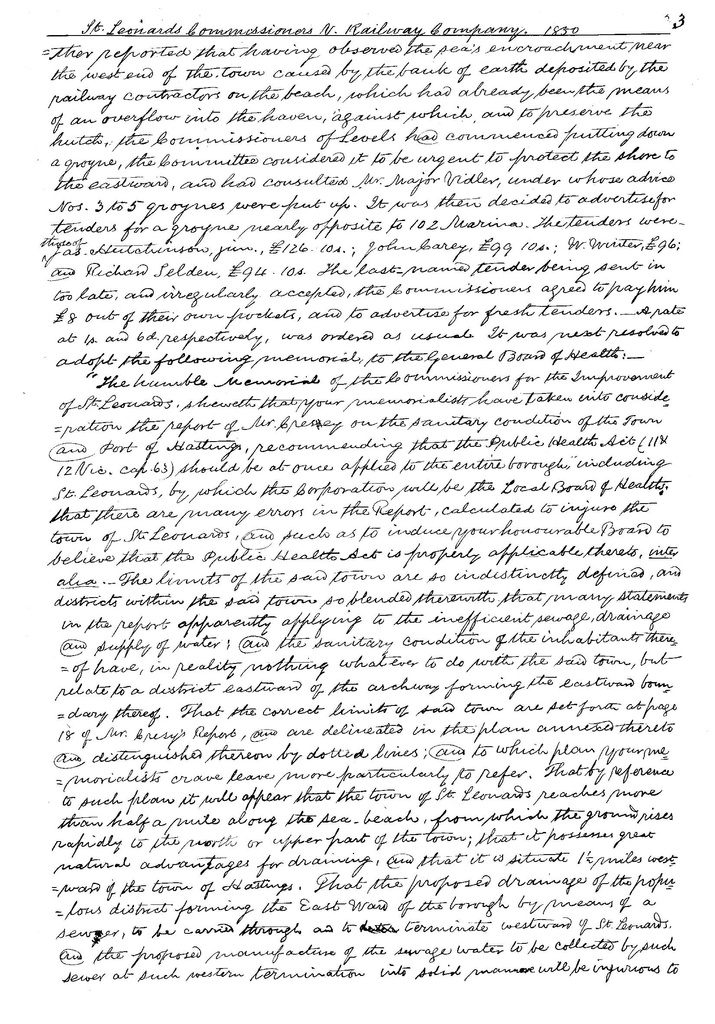 St. Leonards Commissioners V. Railway Company. 1850 3
=ther reported that having observed the sea's encroachment near
the west end of the town caused by the bank of earth deposited by the
railway contractors on the beach, which had already been the means
of an overflow into the haven, against which, and to preserve the
hutch, the Commissioners of Levels had commenced putting down
a groyne, the Committee considered it to be urgent to protect the shore to
the eastward, and had consulted Mr. Major Vidler, under whose advice
Nos. 3 to 5 groynes were put up. It was then decided to advertise for
tenders for a groyne nearly opposite to 102 Marina. The tenders were
those of
Jas. Hutchinson, jun., £126. 10s.; John Carey, £99 10s.; W. Winter, £96;
and Richard Selden, £94. 10s. The last-named tender being sent in
too late, and irregularly accepted, the Commissioners agreed to pay him
£8 out of their own pockets, and to advertise for fresh tenders. — A rate
at 1s. and 6d. respectively, was ordered as usual. It was next resolved to
adopt the following memorial, to the General Board of Health: —
"The humble Memorial of the Commissioners for the Improvement
of St. Leonards, sheweth that your memorialists have taken into conside
=ration the report of Mr. Cressey on the sanitary condition of the Town
and Port of Hastings, recommending that the Public Health Act (11 &
12 Vic. cap. 63) should be at once applied to the entire borough," including
St. Leonards, by which the Corporation will be the Local Board of Health,
that there are many errors in the Report, calculated to injure the
town of St. Leonards, and such as to induce your honourable Board to
believe that the Public Health Act is properly applicable thereto, inter
alia. — The limits of the said town are so indistinctly defined, and
districts within the said town so blended therewith that many statements
in the report apparently applying to the inefficient sewage, drainage
and supply of water; and the sanitary condition of the inhabitants there
=of have, in reality nothing whatever to do with the said town, but
relate to a district eastward of the archway forming the eastward boun
=dary thereof. That the correct limits of said town are set forth at page
18 of Mr. Cresy's Report, and are delineated in the plan annexed thereto
and distinguished thereon by dotted lines; and to which plan your me
=morialists crave leave more particularly to refer. That by reference
to such plan it will appear that the town of St. Leonards reaches more
than half a mile along the sea-beach, from which the ground rises
rapidly to the north or upper part of the town; that it possesses great
natural advantages for draining, and that it is situate 1½ miles west
=ward of the town of Hastings. That the proposed drainage of the popu
=lous district forming the East Ward of the borough by means of a
sewer, to be carried through and to terminate westward of St. Leonards,
and the proposed manufacture of the sewage water to be collected by such
sewer at such western termination into solid manure will be injurious to